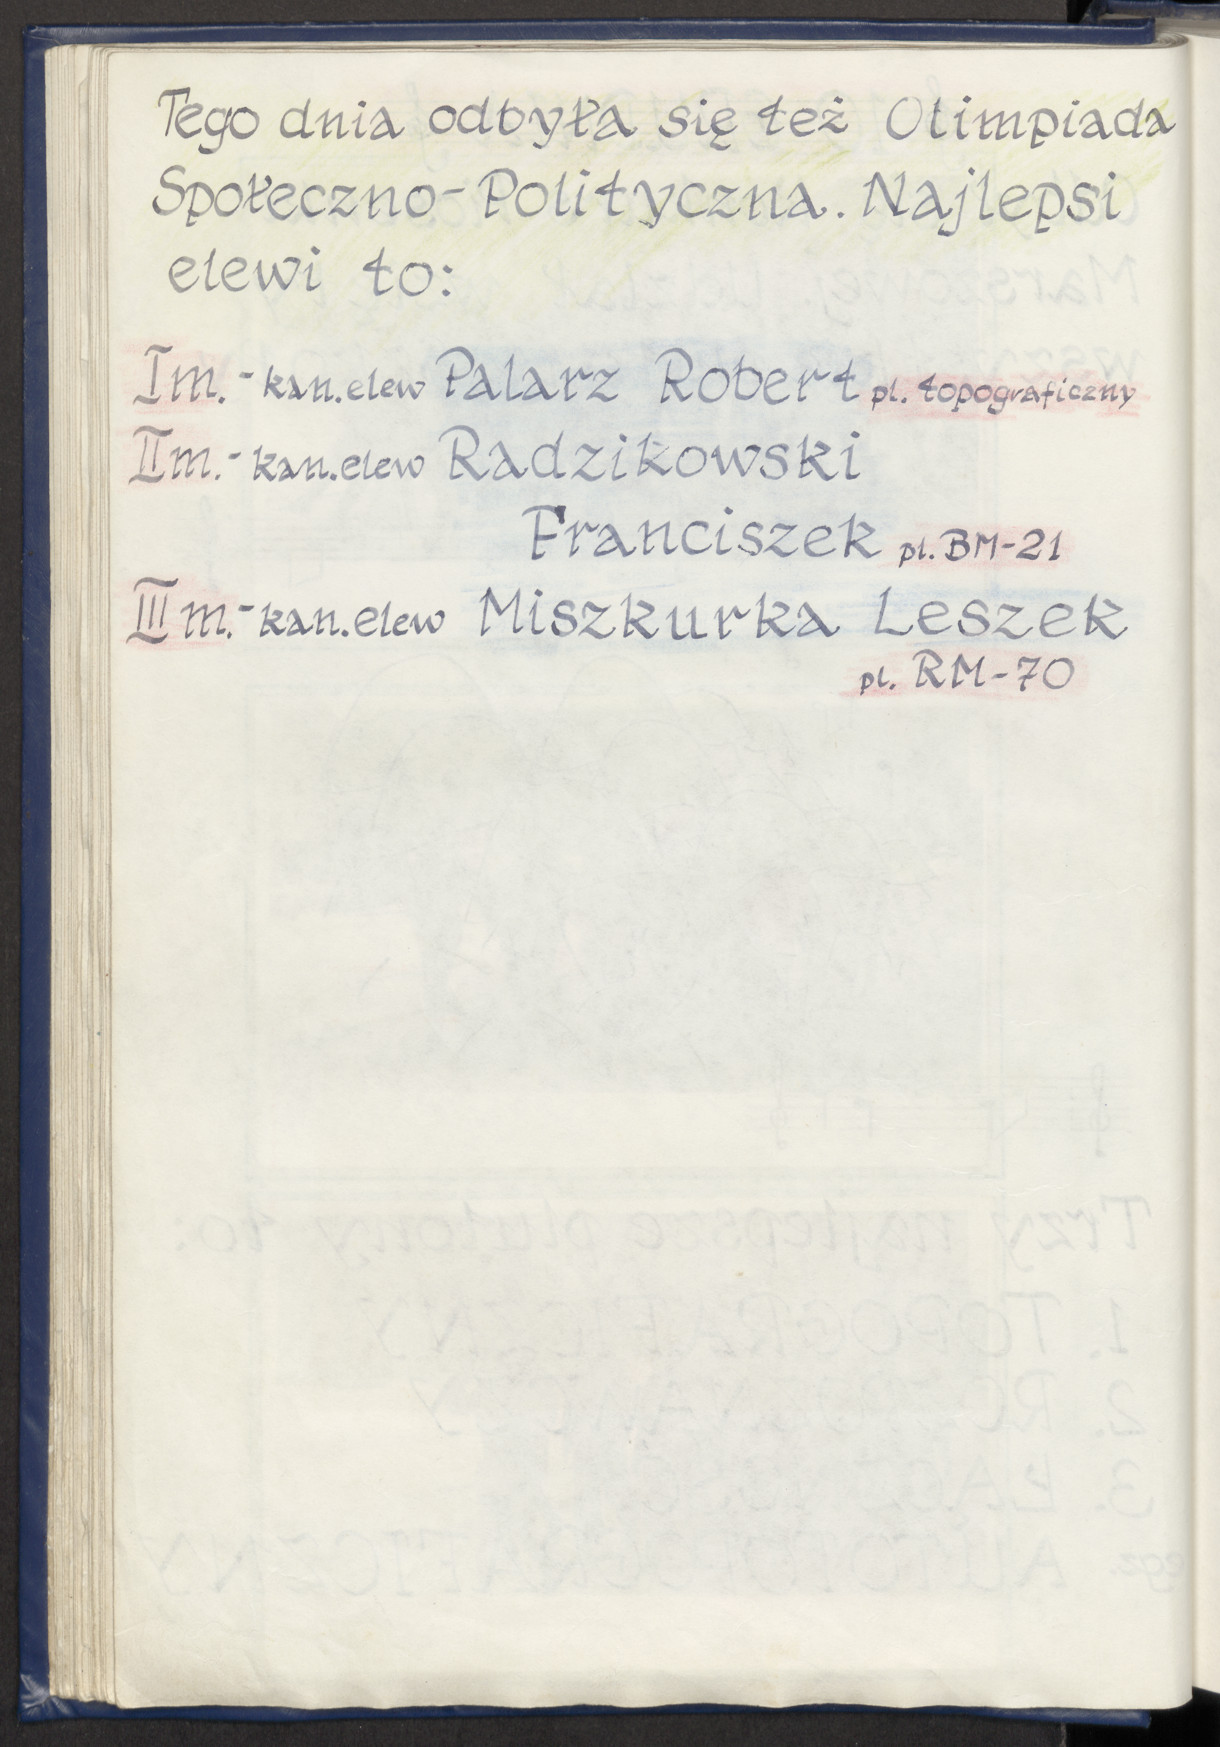 Tego dnia odbyła się też Olimpiada
Społeczno-Polityczna. Najlepsi
elewi to:
I m. - kan. elew Palarz Robert pl. topograficzny
II m. - kan. elew Radzikowski
Franciszek pl. BM-21
III m. - kan. elew Miszkurka Leszek
pl. RM-70